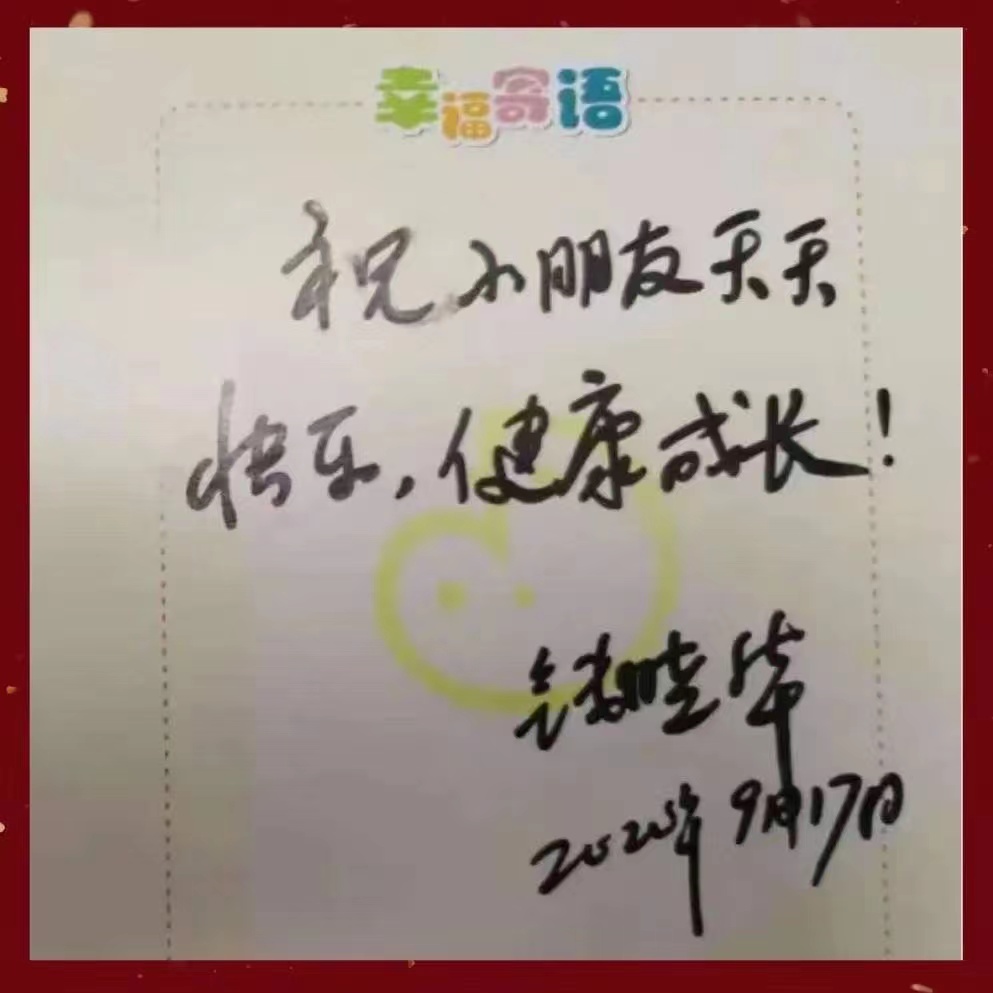 幸福寄语
祝小朋友天天
快乐，健康成长！
2020年9月17日